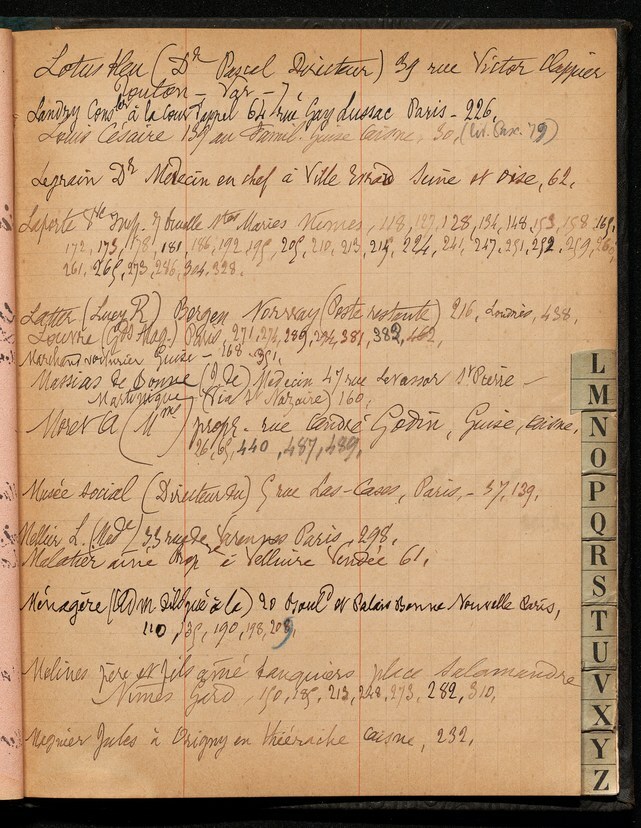 Lotus bleu (Dr Pascal Directeur) 39 rue Victor Clappier
Toulon - Var - 7,
Landry Conser à la Cour d'appel 64 rue Gay Lussac Paris - 226,
Louis Césaire 139 au Famil. Guise Aisne, 30,
Legrain Dr Médecin en chef à Ville Evrard Seine et Oise, 62,
Laporte 7 ruelle Stes Maries Nîmes, 118, 127, 128, 134, 148, 153, 158, 165,
172, 173, 178, 181, 186, 192, 195, 205, 210, 213, 215, 224, 241, 247, 251, 252, 259,
261, 265, 273, 286, 304, 328.
(Lucy R) Bergen Norway (Poste restante) 216, Londres, 438,
Louvre (Gds Mag.) Paris, 271, 276, 289, 381, 382, 462,
Marchand voiturier Guise - 168
Massias de Bonne (J de) Médecin 47 rue Levassor St Pierre -
Martinique (Via St Nazaire) 160,
Moret A (Mme) propr. rue André Godin, Guise, Aisne,
26, 65, 440, 487, 489,
Musée social (Directeur du) 5 rue Las-Cases, Paris, - 37, 139,
Mellier L. (Made) 33 rue de Varennes Paris, 298,
Malatier aîné à Velluire Vendée 61,
Ménagère (Adm délégué à la) 20 Boul d et Palais Bonne Nouvelle Paris,
110, 135, 190, 198, 209,
Molines père et fils aîné banquiers place Salamandre
Nîmes Gard, 150, 185, 213, 248, 273, 282, 310,
Magnier Jules à Origny en Thiérache Aisne, 232,
L
M
N
O
P
Q
R
S
T
U
V
X
Y
Z